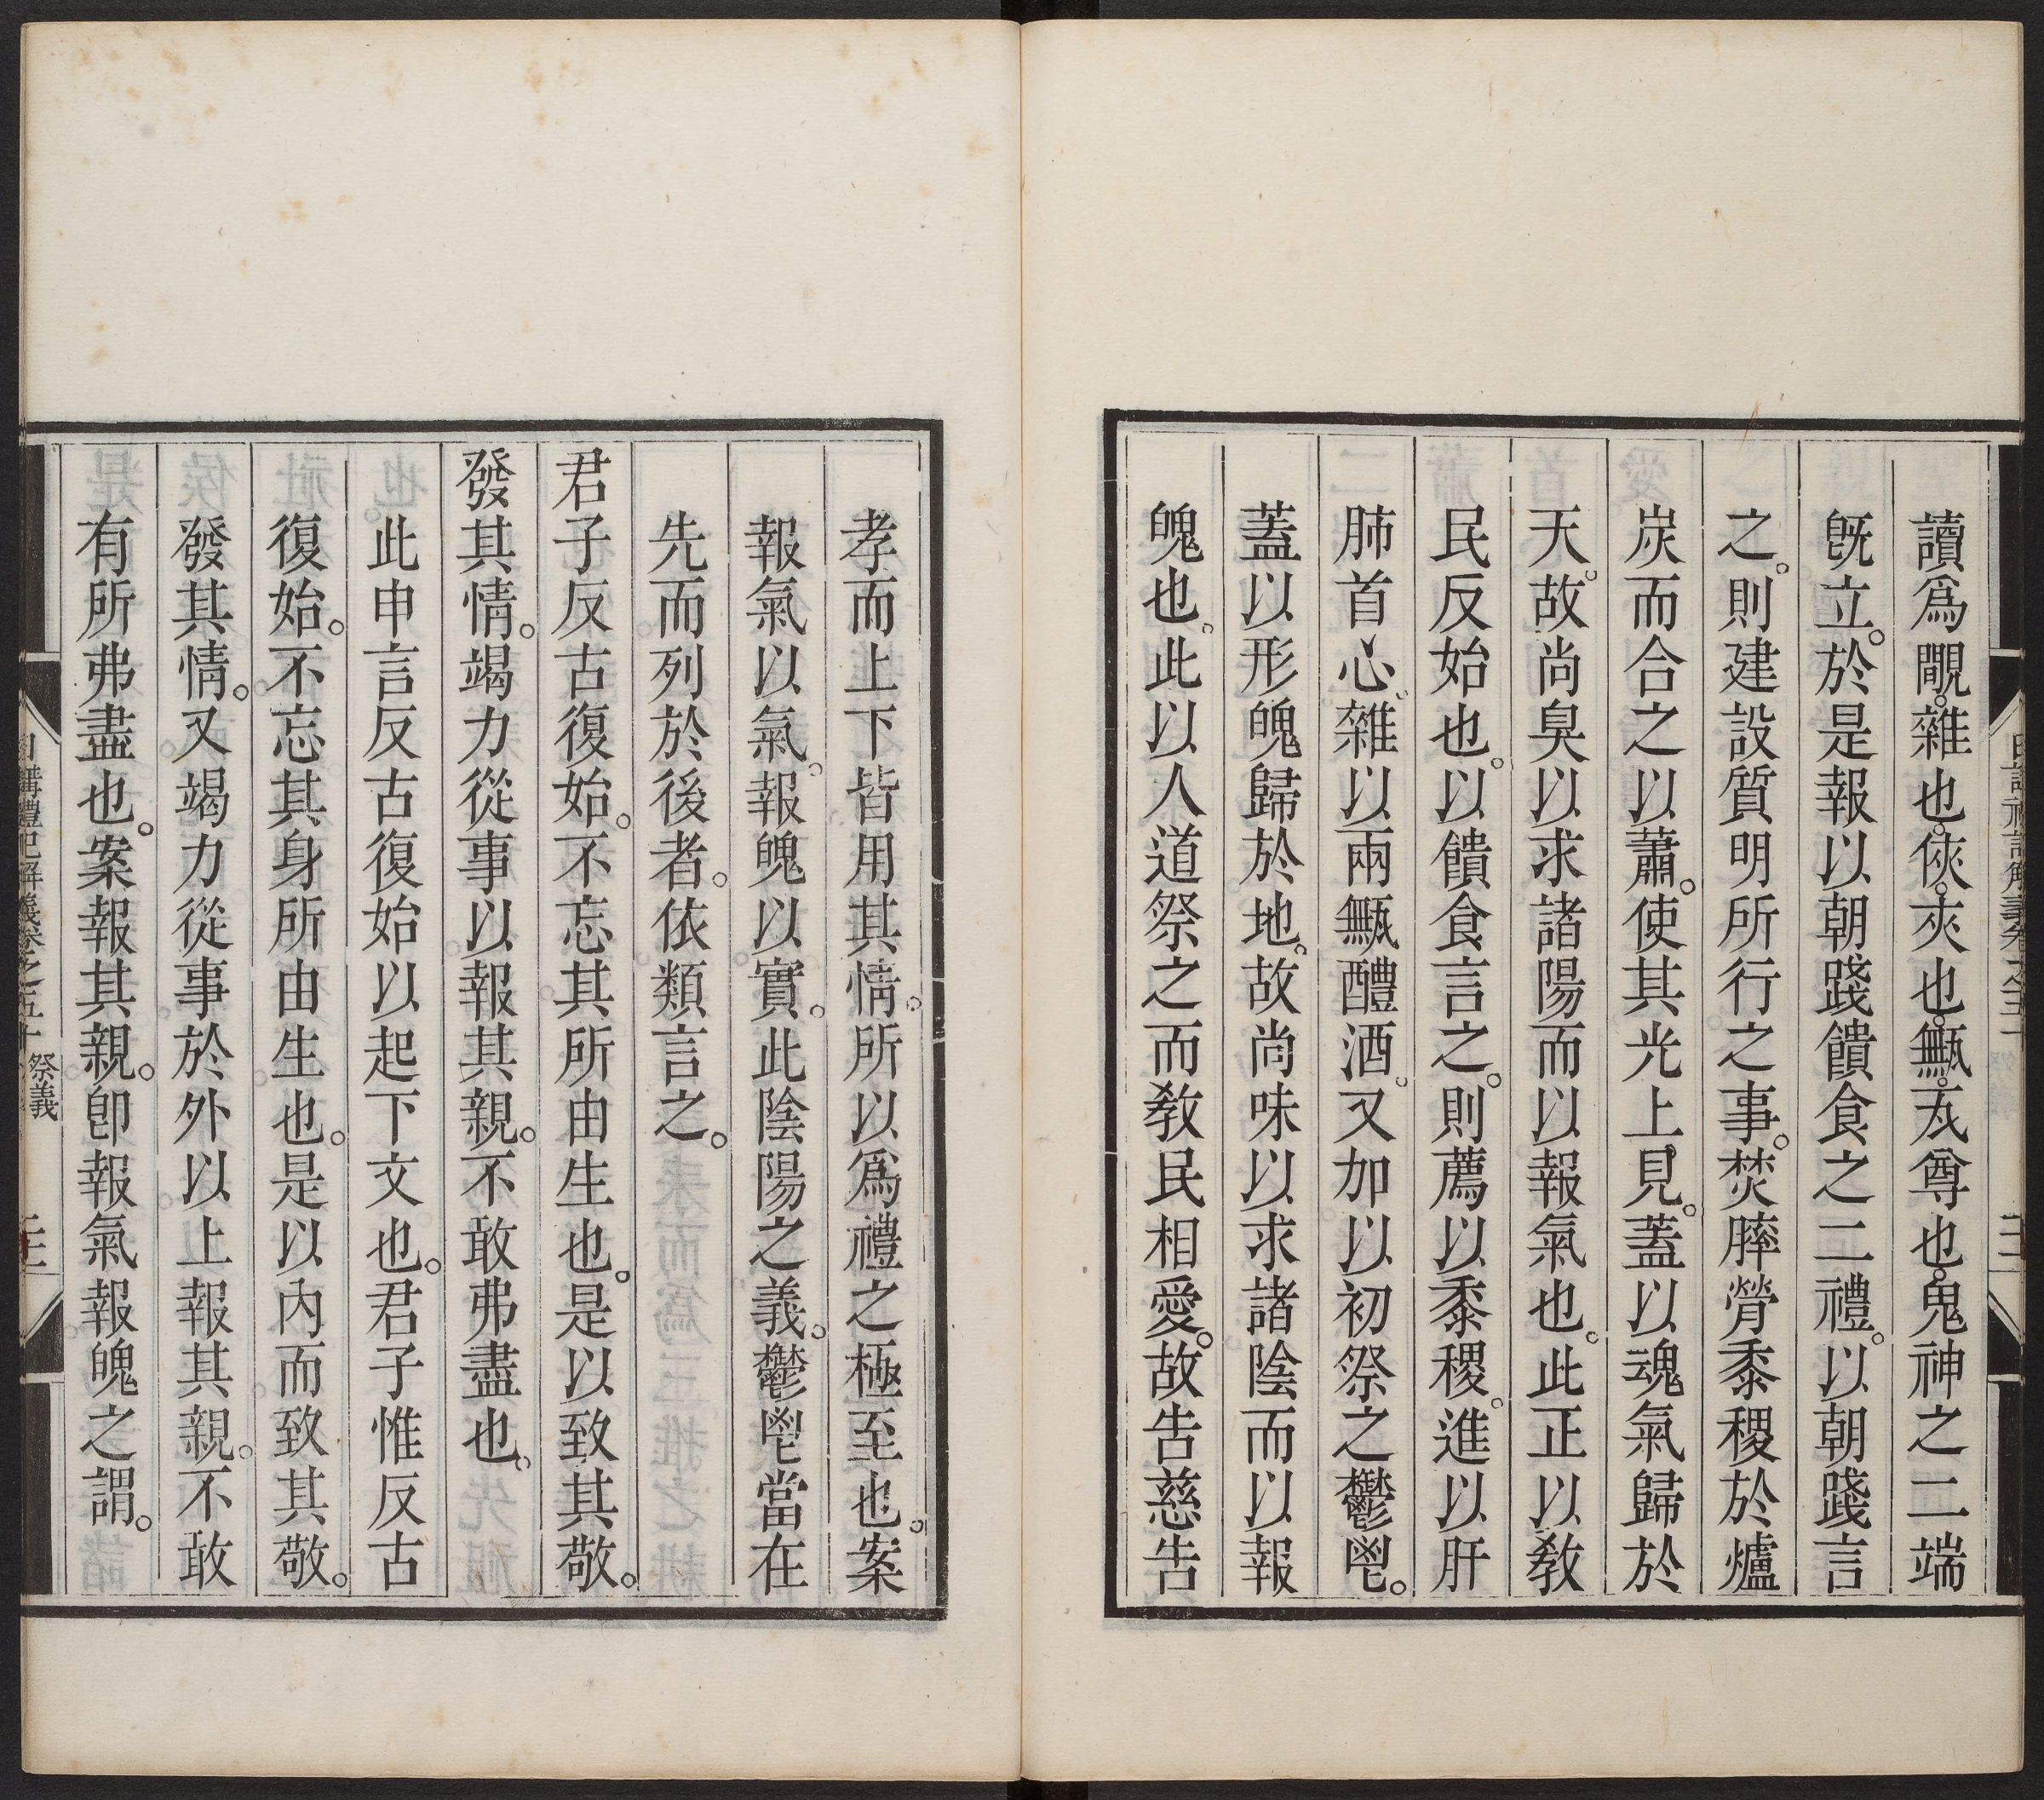 讀爲覸。雜也。俠。夾也。甒。瓦尊也。鬼神之二端
旣立。於是報以朝踐饋食之二禮。以朝踐言
之。則建設質明所行之事。焚膟膋黍稷於爐
炭而合之以蕭。使其光上見。蓋以魂氣歸於
天。故尚臭以求諸陽而以報氣也。此正以敎
民反始也。以饋食言之。則薦以黍稷。進以肝
肺首心。雜以兩甒醴酒。又加以初祭之鬱鬯。
蓋以形魄歸於地。故尚味以求諸陰而以報
魄也。此以人道祭之而敎民相愛。故告慈告
孝而上下皆用其情。所以爲禮之極至也。案
報氣以氣。報魄以實。此陰陽之義。鬱鬯當在
先而列於後者。依類言之。
君子反古復始。不忘其所由生也。是以致其敬。
發其情。竭力從事以報其親。不敢弗盡也。
此申言反古復始以起下文也。君子惟反古
復始。不忘其身所由生也。是以內而致其敬。
發其情。又竭力從事於外以上報其親。不敢
有所弗盡也。案報其親。卽報氣報魄之謂。
日講禮記解義卷之五十 祭義